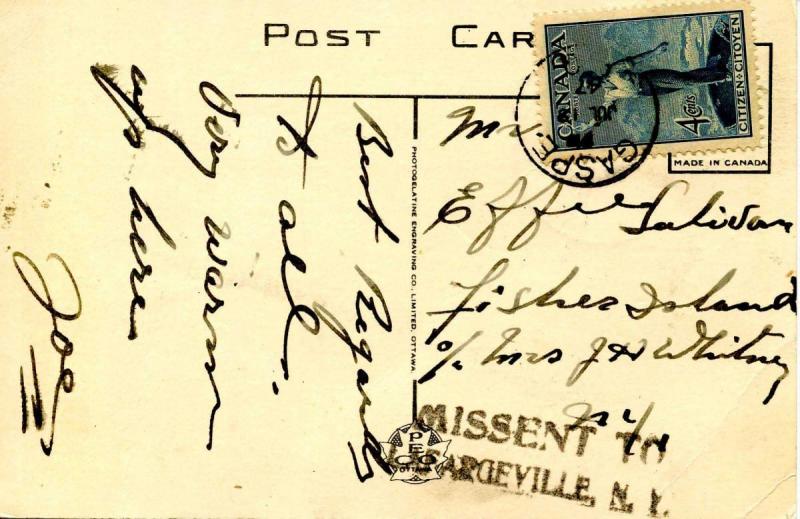 POST CAR
CANADA
4 Cents
CITIZEN • CITOYEN
GASPE
JUL
47
MADE IN CANADA
Best Regards
to all.
Very warm
up here
Joe
PHOTOGELATINE ENGRAVING CO., LIMITED, OTTAWA.
Effie Salivan
Fishes Island
c/o Mrs J H Whitney
N.Y.
PECO
OTTAWA
MISSENT TO
ARGEVILLE, N. Y.